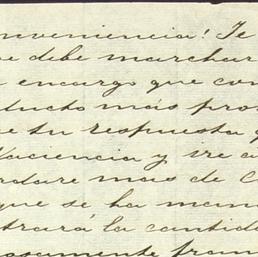 nveniencia! Te
e debe marchar
encargo que con
ducto mas pro
e tu respuesta q
Paciencia y ire a
rdare mas de C
que se ha man
trará la cantida
osamente fran